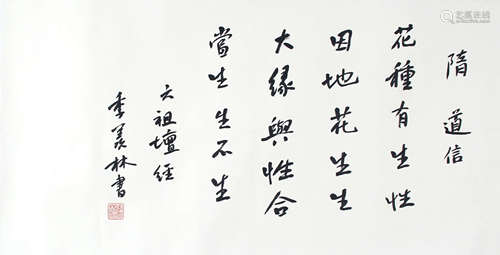 隋 道信
花種有生性
因地花生生
大缘與性合
當生生不生
六祖壇经
季羡林書